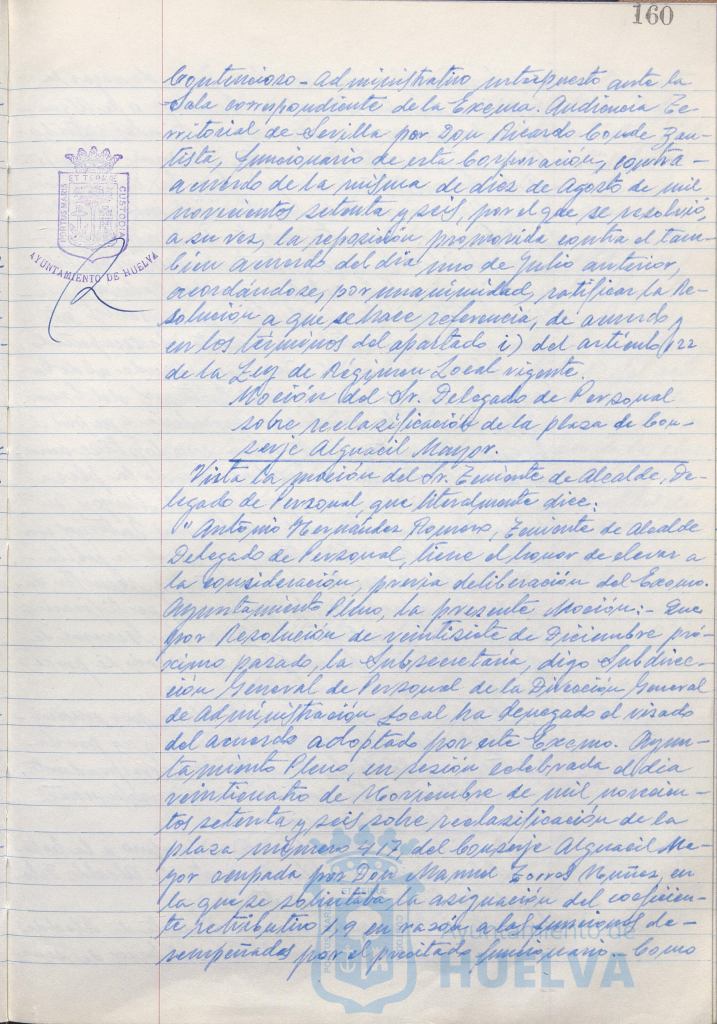 160
Contencioso-administrativo interpuesto ante la
Sala correspondiente de la Excma. Audiencia Te-
rritorial de Sevilla por Don Ricardo Conde Zen-
tista, funcionario de esta Corporación, contra
acuerdo de la misma de diez de Agosto de mil
novecientos setenta y seis, por el que se resolvió,
a su vez, la reposición promovida contra el tam-
bién acuerdo del día uno de Julio anterior,
acordándose, por unanimidad, ratificar la Re-
solución a que se hace referencia, de acuerdo y
en los términos del apartado i) del artículo 122
de la Ley de Régimen Local vigente.
Moción del Sr. Delegado de Personal
sobre reclasificación de la plaza de Con-
serje Alguacil Mayor.
Vista la moción del Sr. Teniente de Alcalde, De-
legado de Personal, que literalmente dice:
"Antonio Hernández Romero, Teniente de Alcalde
Delegado de Personal, tiene el honor de elevar a
la consideración, previa deliberación del Excmo.
Ayuntamiento Pleno, la presente Moción:- Que
por Resolución de veintisiete de Diciembre pró-
ximo pasado, la Subsecretaría, digo Subdirec-
ción General de Personal de la Dirección General
de Administración Local ha denegado el visado
del acuerdo adoptado por este Excmo. Ayun-
tamiento Pleno, en sesión celebrada el día
veinticuatro de Noviembre de mil novecien-
tos setenta y seis sobre reclasificación de la
plaza número 417, del Conserje Alguacil Ma-
yor ocupada por Don Manuel Torres Núñez, en
la que se solicitaba la asignación del coeficien-
te retributivo 1,9 en razón a las funciones de-
sempeñadas por el precitado funcionario.- Como
PORTUS MARIS ET TERRAE CUSTODIA
AYUNTAMIENTO DE HUELVA
Ayuntamiento de
HUELVA